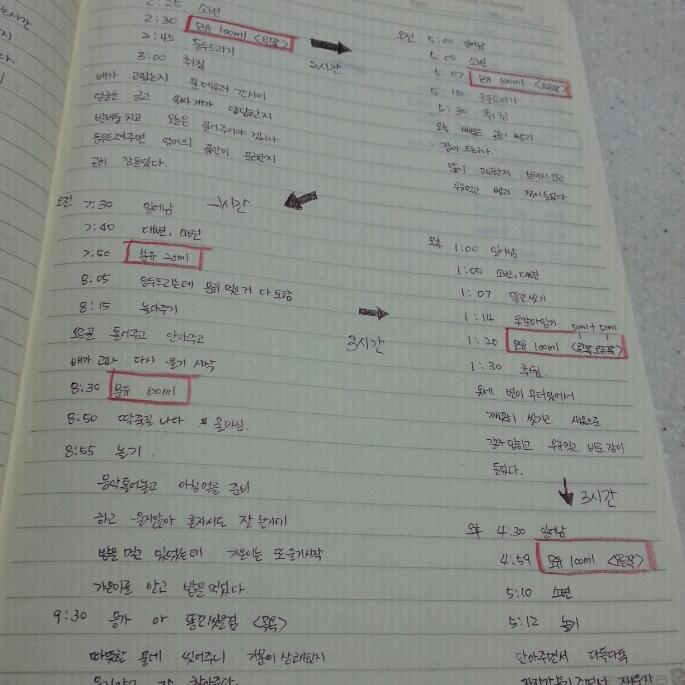 2:25 소변
2:30 모유 100ml <왼쪽>
2:45 등두드리기
3:00 취침
2시간
배가 고팠는지 물 데우러 간사이
얼굴은 긁고
발버둥치고 오늘은
등두드려주면 엄마의 품안이
곤히 잠들었다.
오전 5:00 일어남
5:05 소변
5:07 모유 100ml <오른쪽>
5:15 등두드리기
5:30 취침
오늘 새벽은
잠이 드는구나.
많이 피곤한지 보채지 않고
우유먹고 바로 잠이 들었다
오전 7:30 일어남
시간
7:40 대변, 소변
7:50 분유 20ml
8:05 등두드리는데 분유 먹은거 다 토함
8:15 놀아주기
모르골 틀어주고 안아주고
배가 고파 다시 울기 시작
8:30 분유 60ml
8:50 딱꾹질 나다 물마심.
8:55 놀기
음악틀어놓고 아침먹을 준비
하고 울지않아 혼자서도 잘 놀기에
밥을 먹고 있었는데 가온이는 또 울기시작
가온이를 안고 밥을 먹었다.
9:30 응가 아 똥꼬씻을겸 <목욕>
따뜻한 물에 씻어주니 기분이 상쾌한지
3시간
오후 1:00 일어남
1:05 소변, 대변
1:07 똥꼬씻기
1:14 옷갈아입기
50ml + 50ml
1:20 모유 100ml <왼쪽, 오른쪽>
1:30 취침.
옷에 변이 묻어있어서
깨끗히 씻기고 새옷으로
갈아 입히고 우유먹고 바로 잠이
들었다.
3시간
오후 4:30 일어남
4:59 모유 100ml <오른쪽>
5:10 소변
5:12 놀기
안아주면서 다독다독